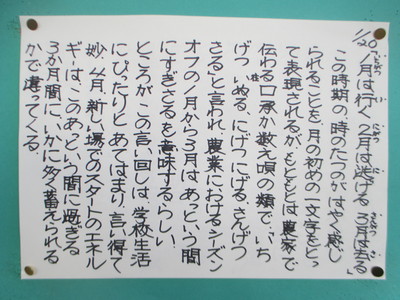 1/20 「1月は行く 2月は逃げる 3月は去る」
この時期の、時のたつのがはやく感じ
られることを、月の初めの一文字をとっ
て表現されるが、もともとは農家で
伝わる口承か数え唄の類で、「いち
げつ いぬる、にげつ にげる、さんげつ
さる」と言われ、農業におけるシーズン
オフの1月から3月は、あっという間
にすぎさるを意味するらしい。
ところが、この言い回しは、学校生活
にぴったりとあてはまり、言い得て
妙。4月、新しい場でのスタートのエネル
ギーは、このあっという間に過ぎる
3か月間に、いかに多く蓄えられる
かで違ってくる。